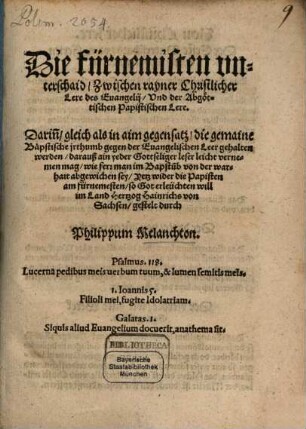 Polem. 2054.
9
Die fürnemisten vn-
terschaid / Zwischen rayner Christlicher
Lere des Euangelij / Vnd der Abgöt-
tischen Papistischen Lere.
Darin̄ / gleich als in aim gegensatz / die gemaine
Bäpstische jrthumb gegen der Euangelischen Leer gehalten
werden / darauß ain yeder Gottseliger leser leicht verne-
men mag / wie fert man im Bapstůb von der war-
hait abgewichen sey / Yetz wider die Papisten
am fürnemesten / so Got erleüchten will
im Land Hertzog Hainrichs von
Sachsen / gestelt durch
Philippum Melanchton.
Psalmus. 118.
Lucerna pedibus meis uerbum tuum, & lumen semitis meis.
1. Ioannis 5.
Filioli mei, fugite Idolatriam.
Galatas. 1.
Siquis aliud Euangelium docuerit, anathema sit.
BIBLIOTHECA
Bayerische
Staatsbibliothek
München